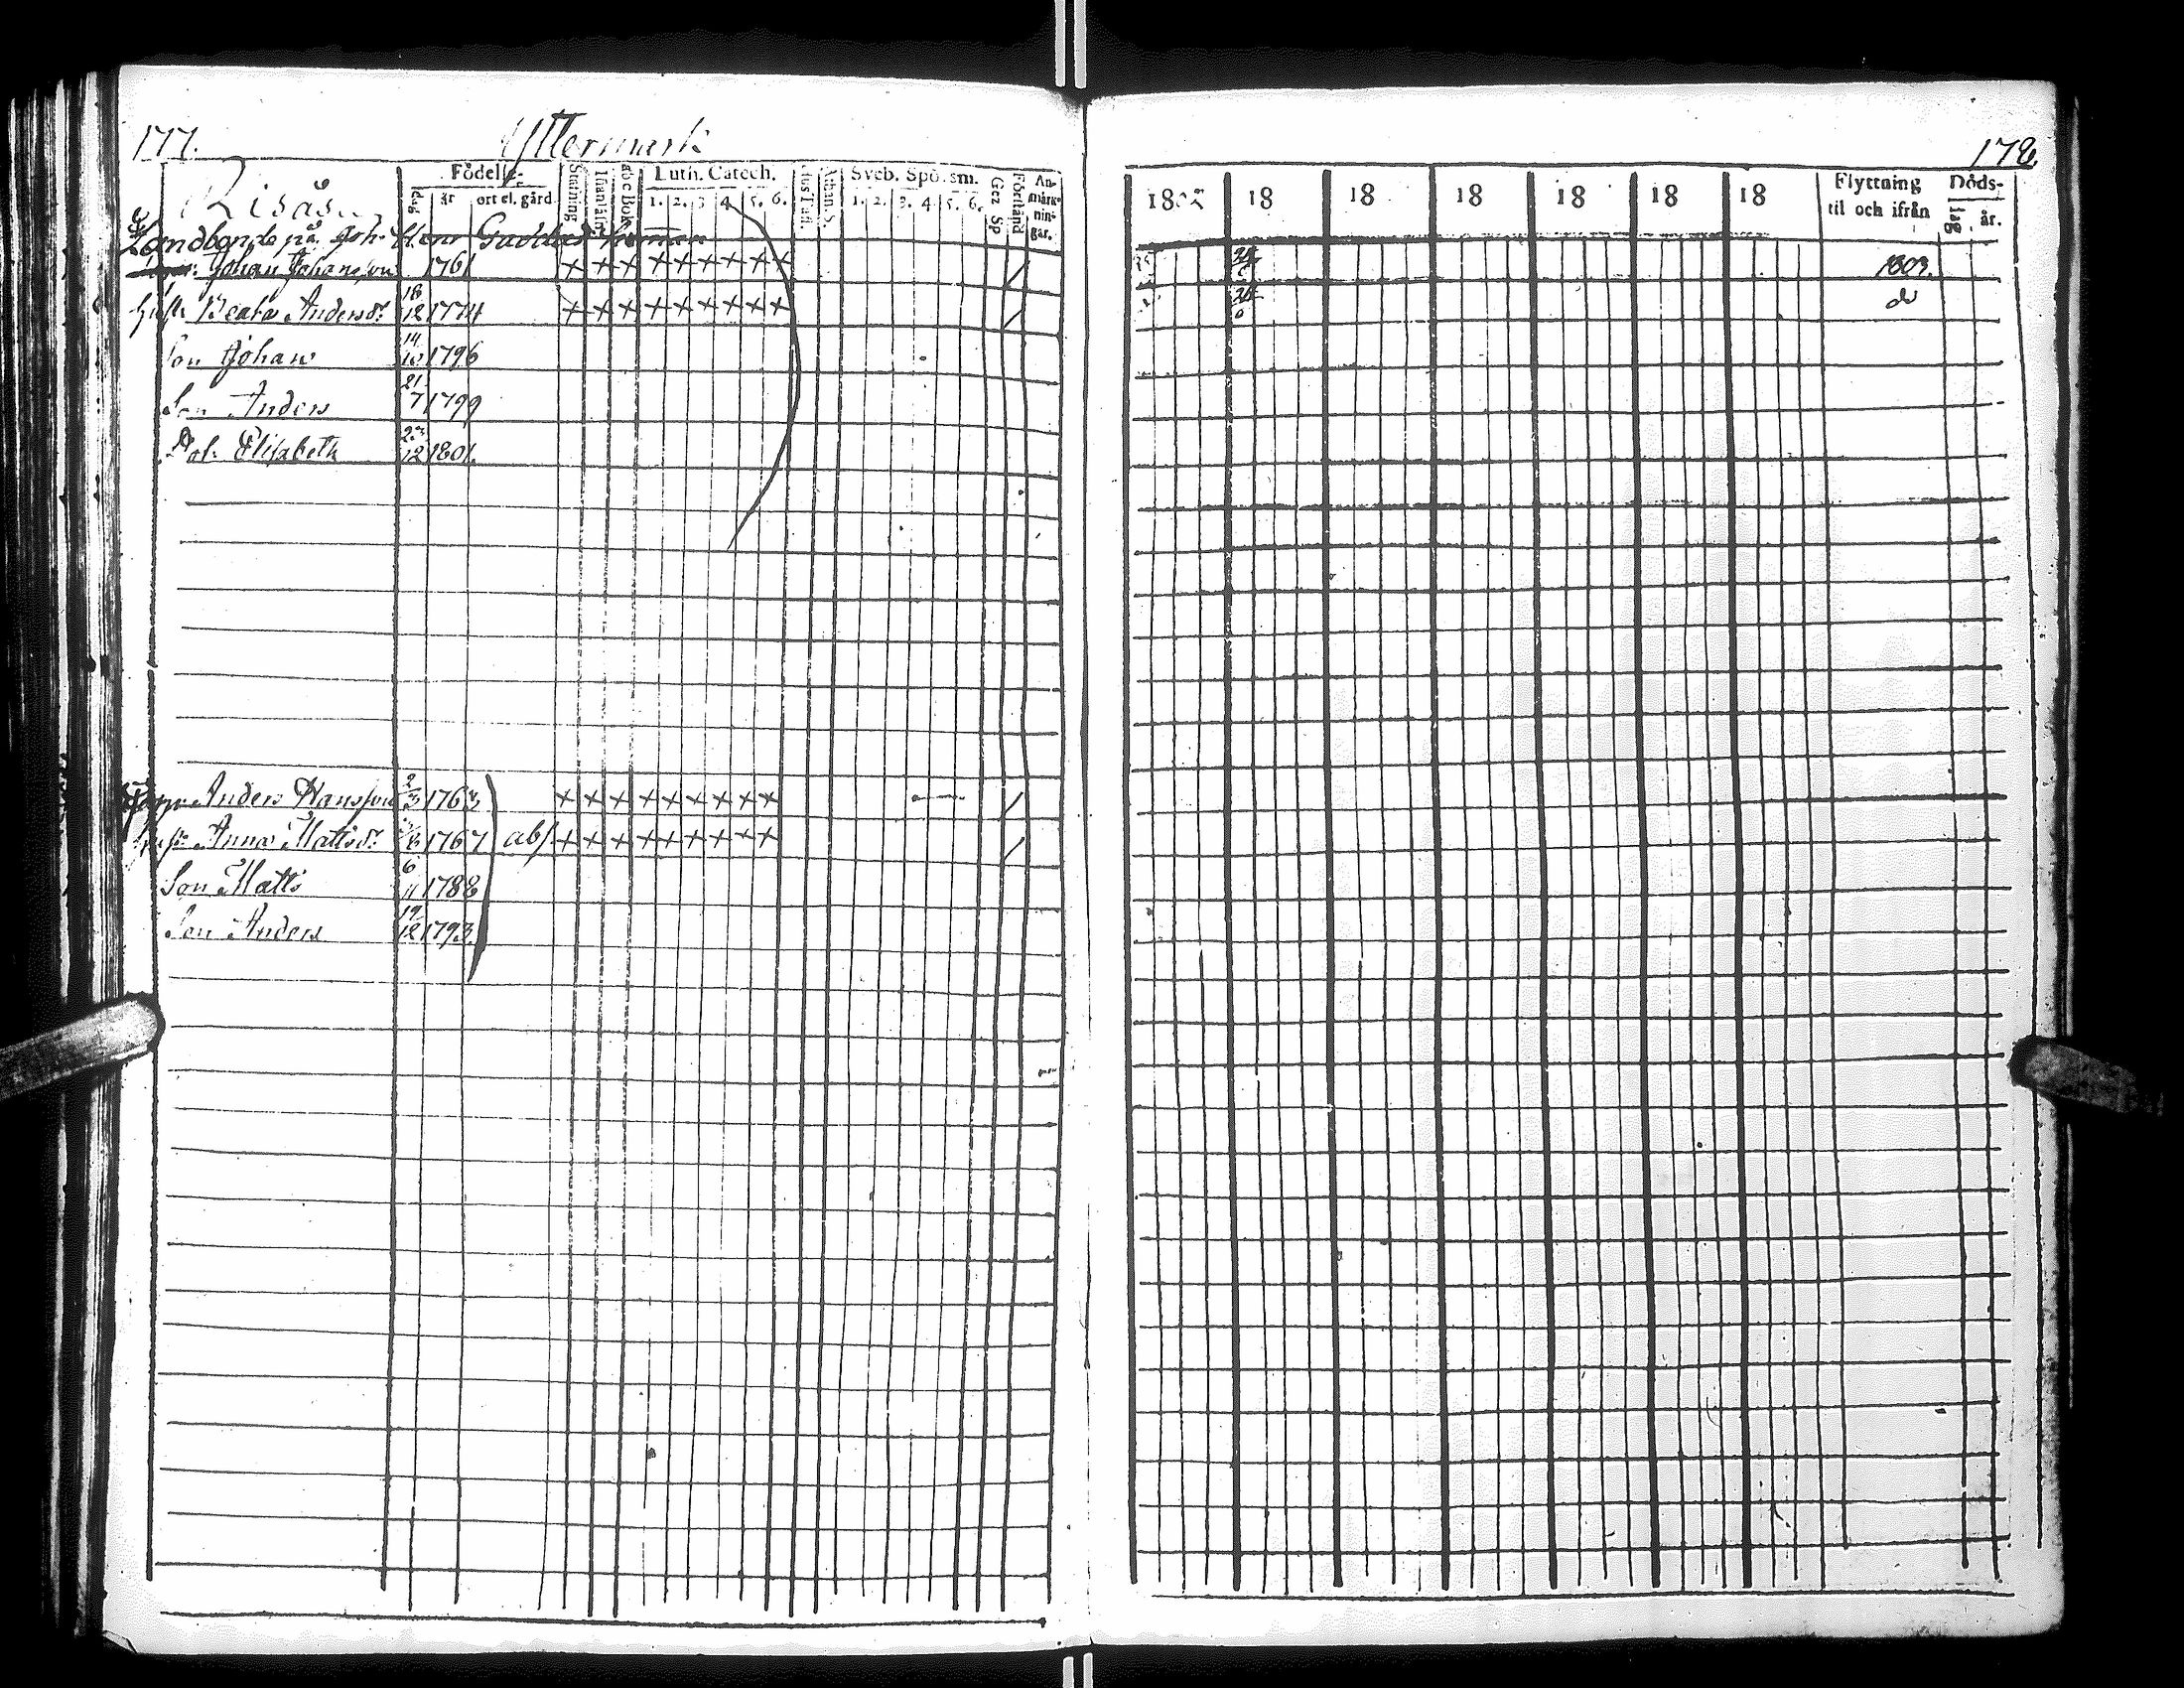 177.
Yttermark
178.
Risås
Födelse-
dag
år
ort el. gård
Stafning
Innanläsn
abc Bok
Luth. Catech.
1. 2. 3 4 5. 6.
Hus Tafl.
Athan. S
Sveb. Spörsm.
1. 2. 3. 4 5. 6.
Gez Sp
Förstånd
An-
märk-
nin-
gar.
Landbonde på Joh. Gaddas hemman
Johan Johansson 1761 × × × × × × × × ×
Hust: Beata Andersdr 18/12 1774 × × × × × × × × ×
Son Johan 14/10 1796
Son Anders 21/7 1799
Dot: Elisabeth 23/12 1801.
Anders Hansson 2/3 1763 × × × × × × × × ×
Hust: Anna Mattsdr 1767 abs × × × × × × × × ×
Son Matts 6/11 1788
Son Anders 19/12 1793.
1802 18 18 18 18 18 18
Flyttning
til och ifrån
Döds-
dag
år.
1803.
do